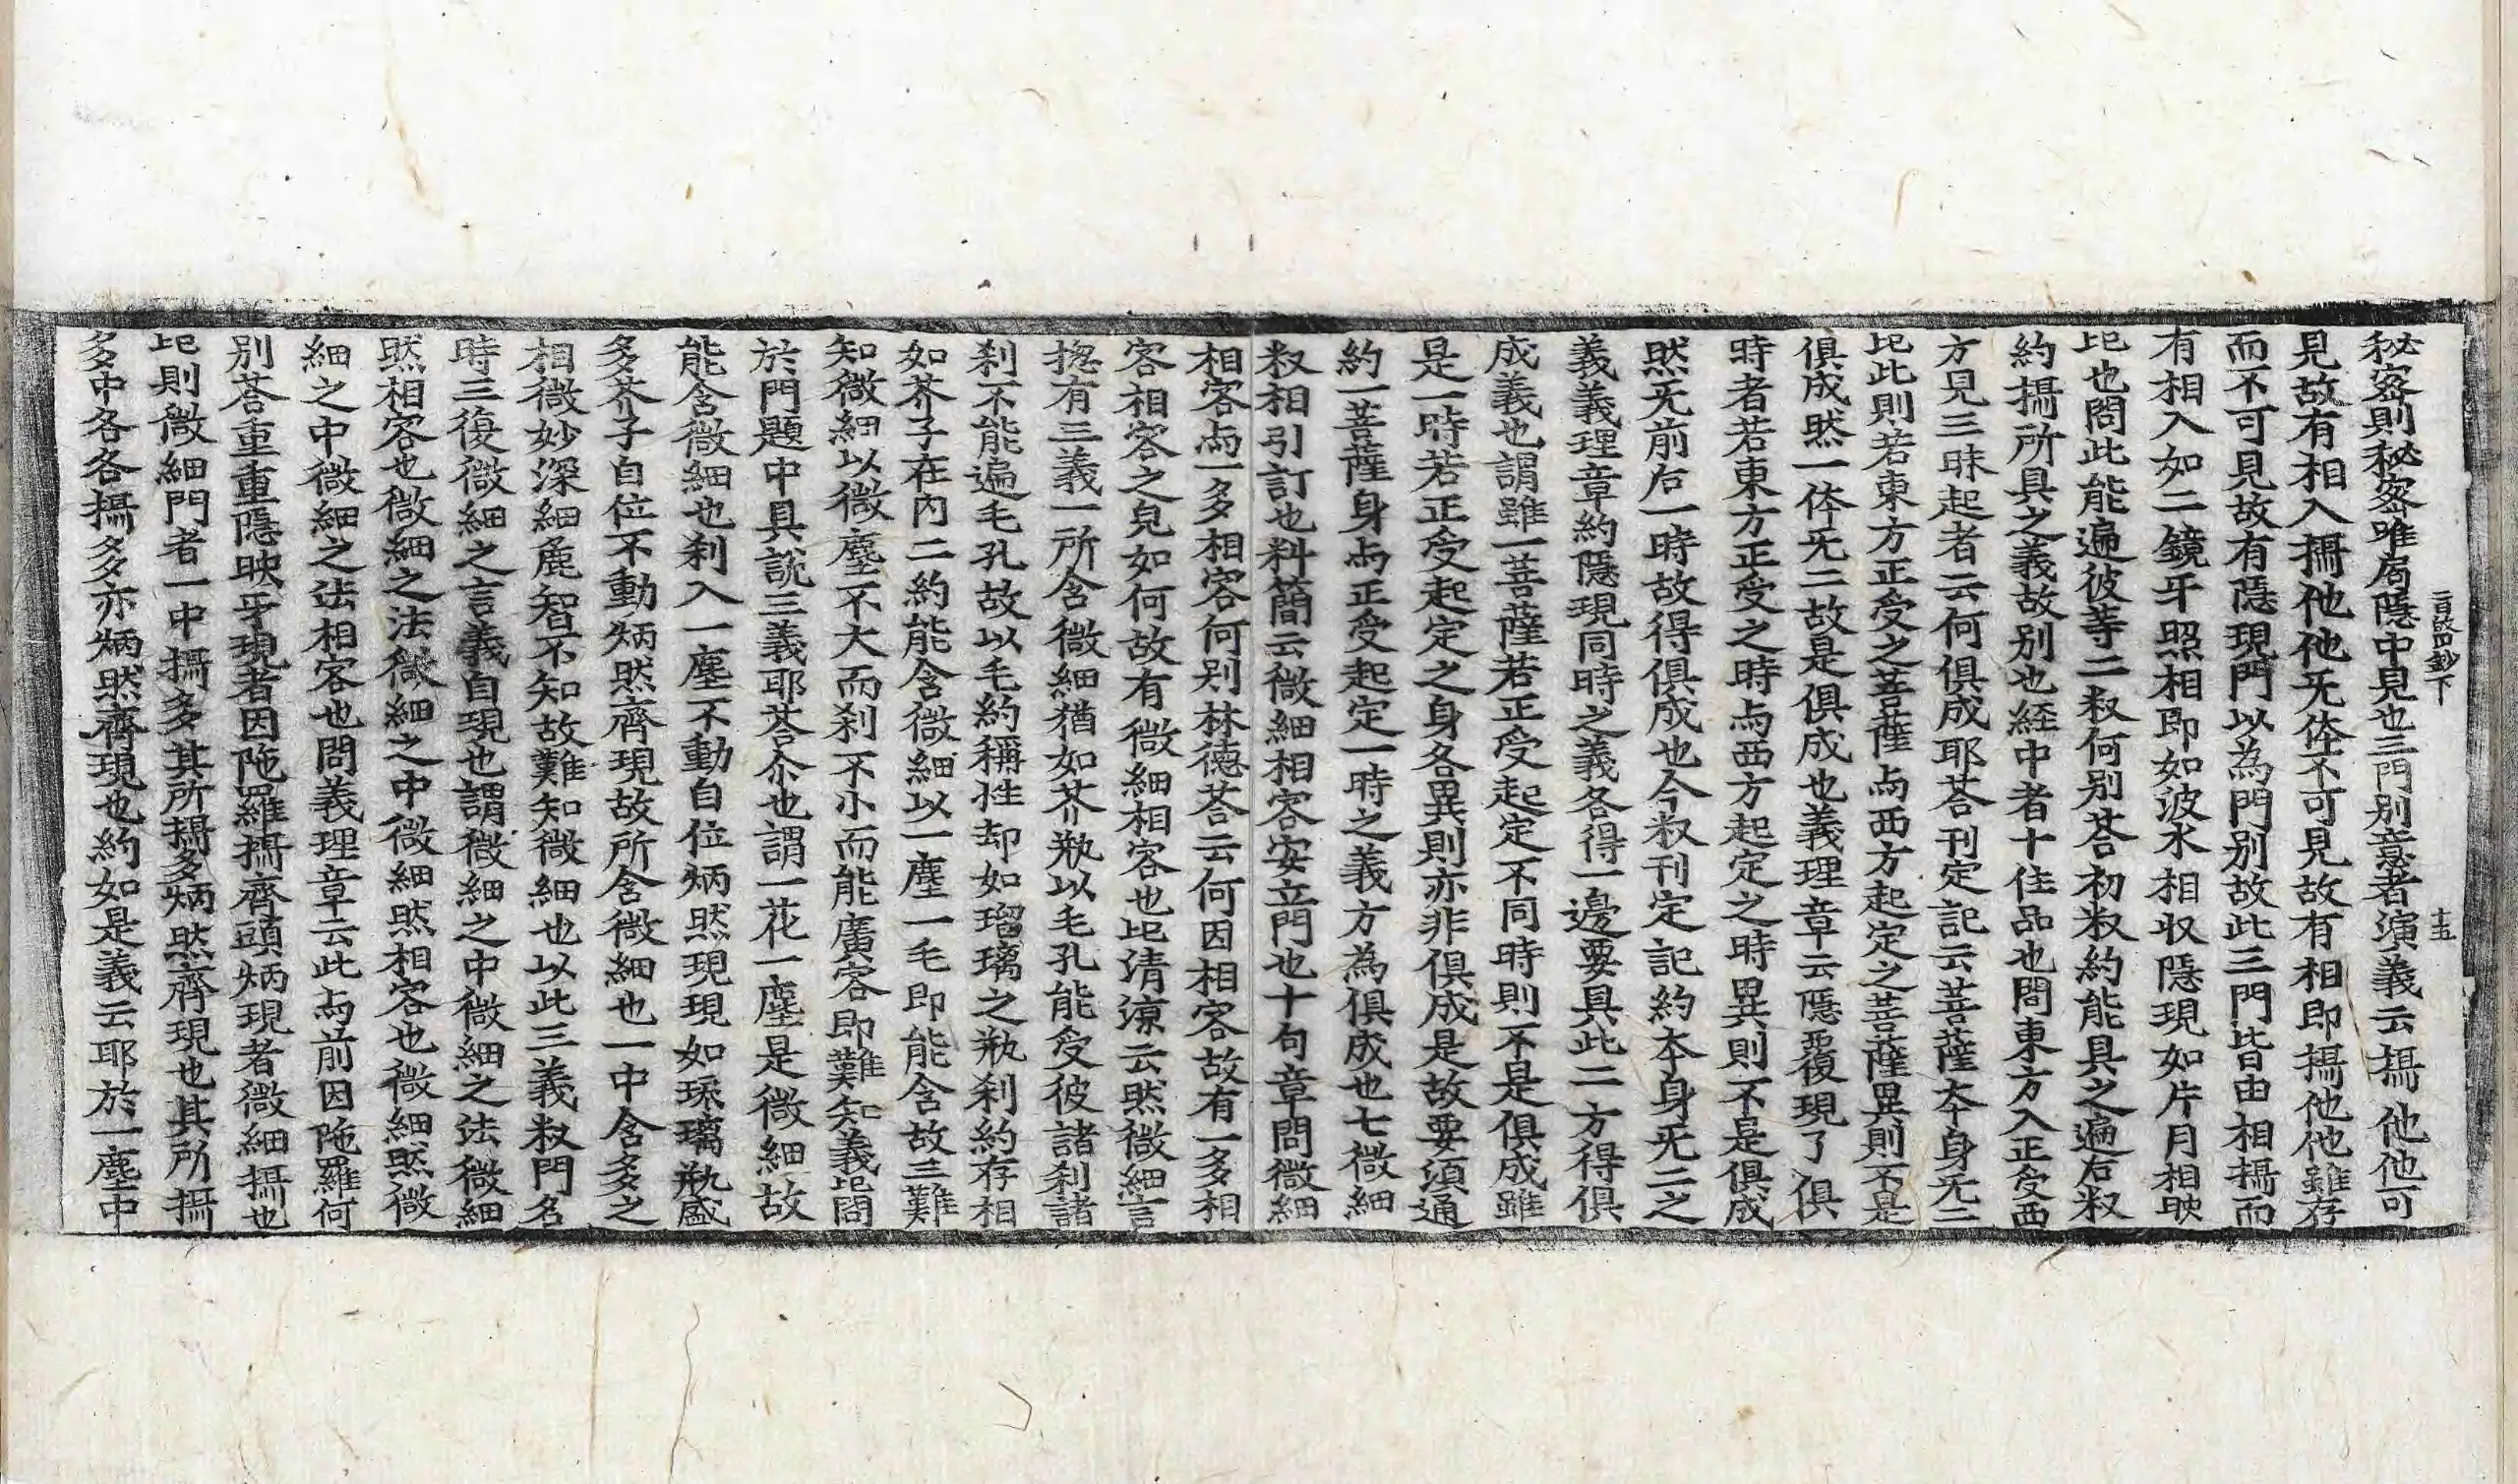 秘密則秘密唯局隱中見也三門別意者演義云攝他他可
見故有相入攝他他无体不可見故有相即攝他他雖存
而不可見故有隱現門以為門別故此三門皆由相攝而
有相入如二鏡牙照相即如波水相収隱現如片月相映
圯也問此能遍彼等二叔何別荅初叔約能具之遍右叔
約攝所具之義故別也経中者十住品也問東方入正受西
方見三昧起者云何俱成耶荅刊定記云菩薩夲身无二
圯此則若東方正受之菩薩与西方起定之菩薩異則不是
俱成然一体无二故是俱成也義理章云隱覆現了俱
時者若東方正受之時与西方起定之時異則不是俱成
然无前右一時故得俱成也今叔刊定記約本身无二之
義義理章約隱現同時之義各得一邊要具此二方得俱
成義也謂雖一菩薩若正受起定不同時則不是俱成雖
是一時若正受起定之身各異則亦非俱成是故要須通
約一菩薩身与正受起定一時之義方為俱成也七微細
叔相引訂也料蕳云微細相容安立門也十句章問微細
相容与一多相容何別林德荅云何因相容故有一多相
容相容之皃如何故有微細相容也圯清凉云然微細言
揔有三義一所含微細猶如芥瓶以毛孔能受彼諸刹諸
刹不能遍毛孔故以毛約稱性却如瑠璃之瓶刹約存相
如芥子在內二約能含微細以一塵一毛即能含故三難
知微細以微塵不大而刹不小而能廣容即難知義圯問
於門題中具說三義耶荅尒也謂一花一塵是微細故
能含微細也刹入一塵不動自位炳然現現如琉璃瓶盛
多芥子自位不動炳然齊現故所含微細也一中含多之
相微妙深細麁智不知故難知微細也以此三義叔門名
時三復微細之言義自現也謂微細之中微細之法微細
然相容也微細之法微細之中微細然相容也微細然微
細之中微細之法相容也問義理章云此与前因陁羅何
別荅重重隱映牙現者因陁羅攝齊頭炳現者微細攝也
圯則微細門者一中攝多其所攝多炳然齊現也其所攝
多中各各攝多亦炳然齊現也約如是義云耶於一塵中
十五